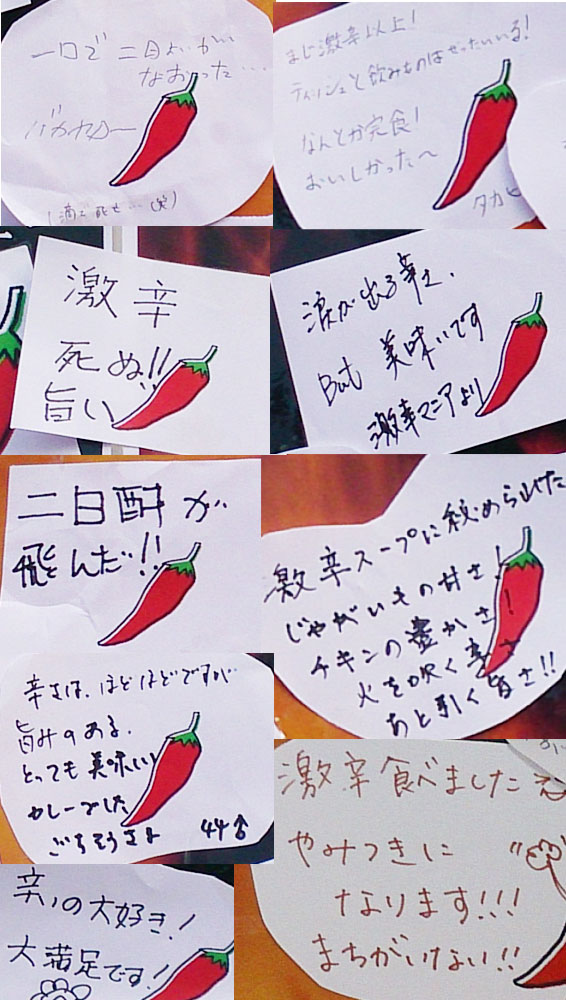 一口で 二日よいが
なおった…
バカヤロー
1滴で死せ…(笑)
まじ激辛以上!
ティッシュと飲みものはぜったいいる!
なんとか完食!
おいしかった〜
タカヒ
激辛
死ぬ!!
旨い
涙が出る辛さ、
But 美味いです
激辛マニアより
二日酔が
飛んだ!!
激辛スープに秘められた
じゃがいもの甘さ!
チキンの豊かさ!
火を吹く辛さ
あと引く旨さ!!
辛さは、ほどほどですが
旨みのある、
とっても美味しい
カレーでした
ごちそうさま
44♂
激辛食べました
やみつきに
なります!!!
まちがいない!!
辛いの大好き!
大満足です!